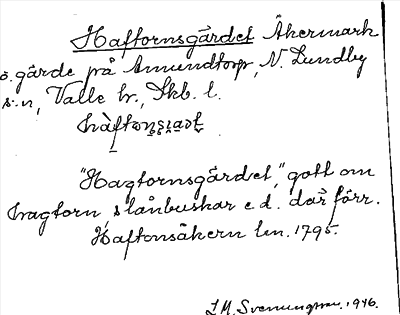 Haftornsgärdet Åkermark
o. gärde på Amundtorp, N. Lundby
s:n, Valle hr., Skb. l.
"Hagtornsgärdet", gott om
hagtorn, slånbuskar e.d. där förr.
Haftonsåkern len. 1795.
L.M. Svenungsson. 1946.